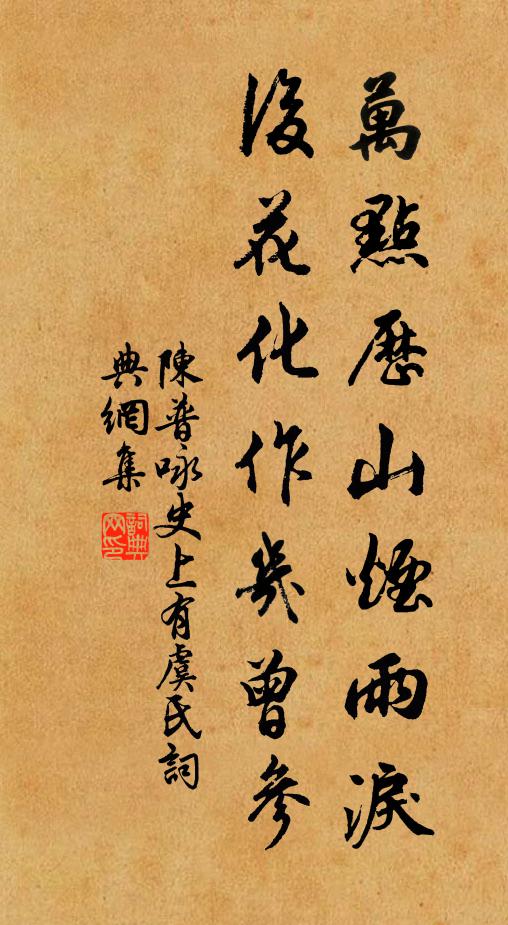 萬點歷山煙雨淚
後花化作幾曾參
陳普咏史上有虞氏詞
典網集
詞典網印